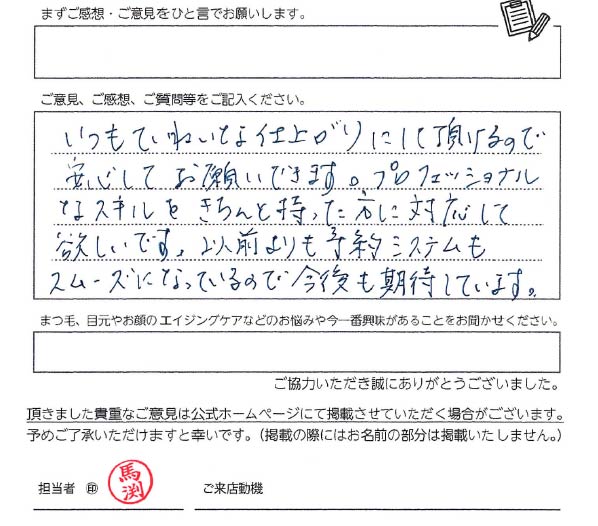 まずご感想・ご意見をひと言でお願いします。
ご意見、ご感想、ご質問等をご記入ください。
いつもていねいな仕上がりにして頂けるので
安心してお願いできます。プロフェッショナル
なスキルをきちんと持った方に対応して
欲しいです。以前よりも予約システムも
スムーズになっているので今後も期待しています。
まつ毛、目元やお顔のエイジングケアなどのお悩みや今一番興味があることをお聞かせください。
ご協力いただき誠にありがとうございました。
頂きました貴重なご意見は公式ホームページにて掲載させていただく場合がございます。
予めご了承いただけますと幸いです。（掲載の際にはお名前の部分は掲載いたしません。）
担当者 ㊞ 馬渕 ご来店動機